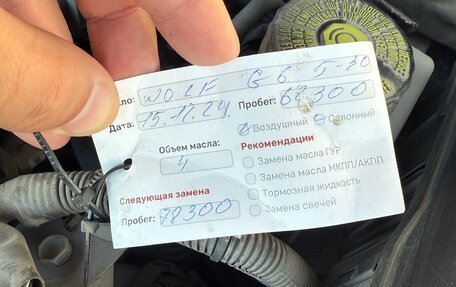 ло: WOLF G6 5-30
Дата: 15.12.24. Пробег: 68300
Воздушный Салонный
Объем масла: 4
Рекомендации
Замена масла ГУР
Замена масла МКПП/АКПП
Тормозная жидкость
Замена свечей
Следующая замена
Пробег: 78300